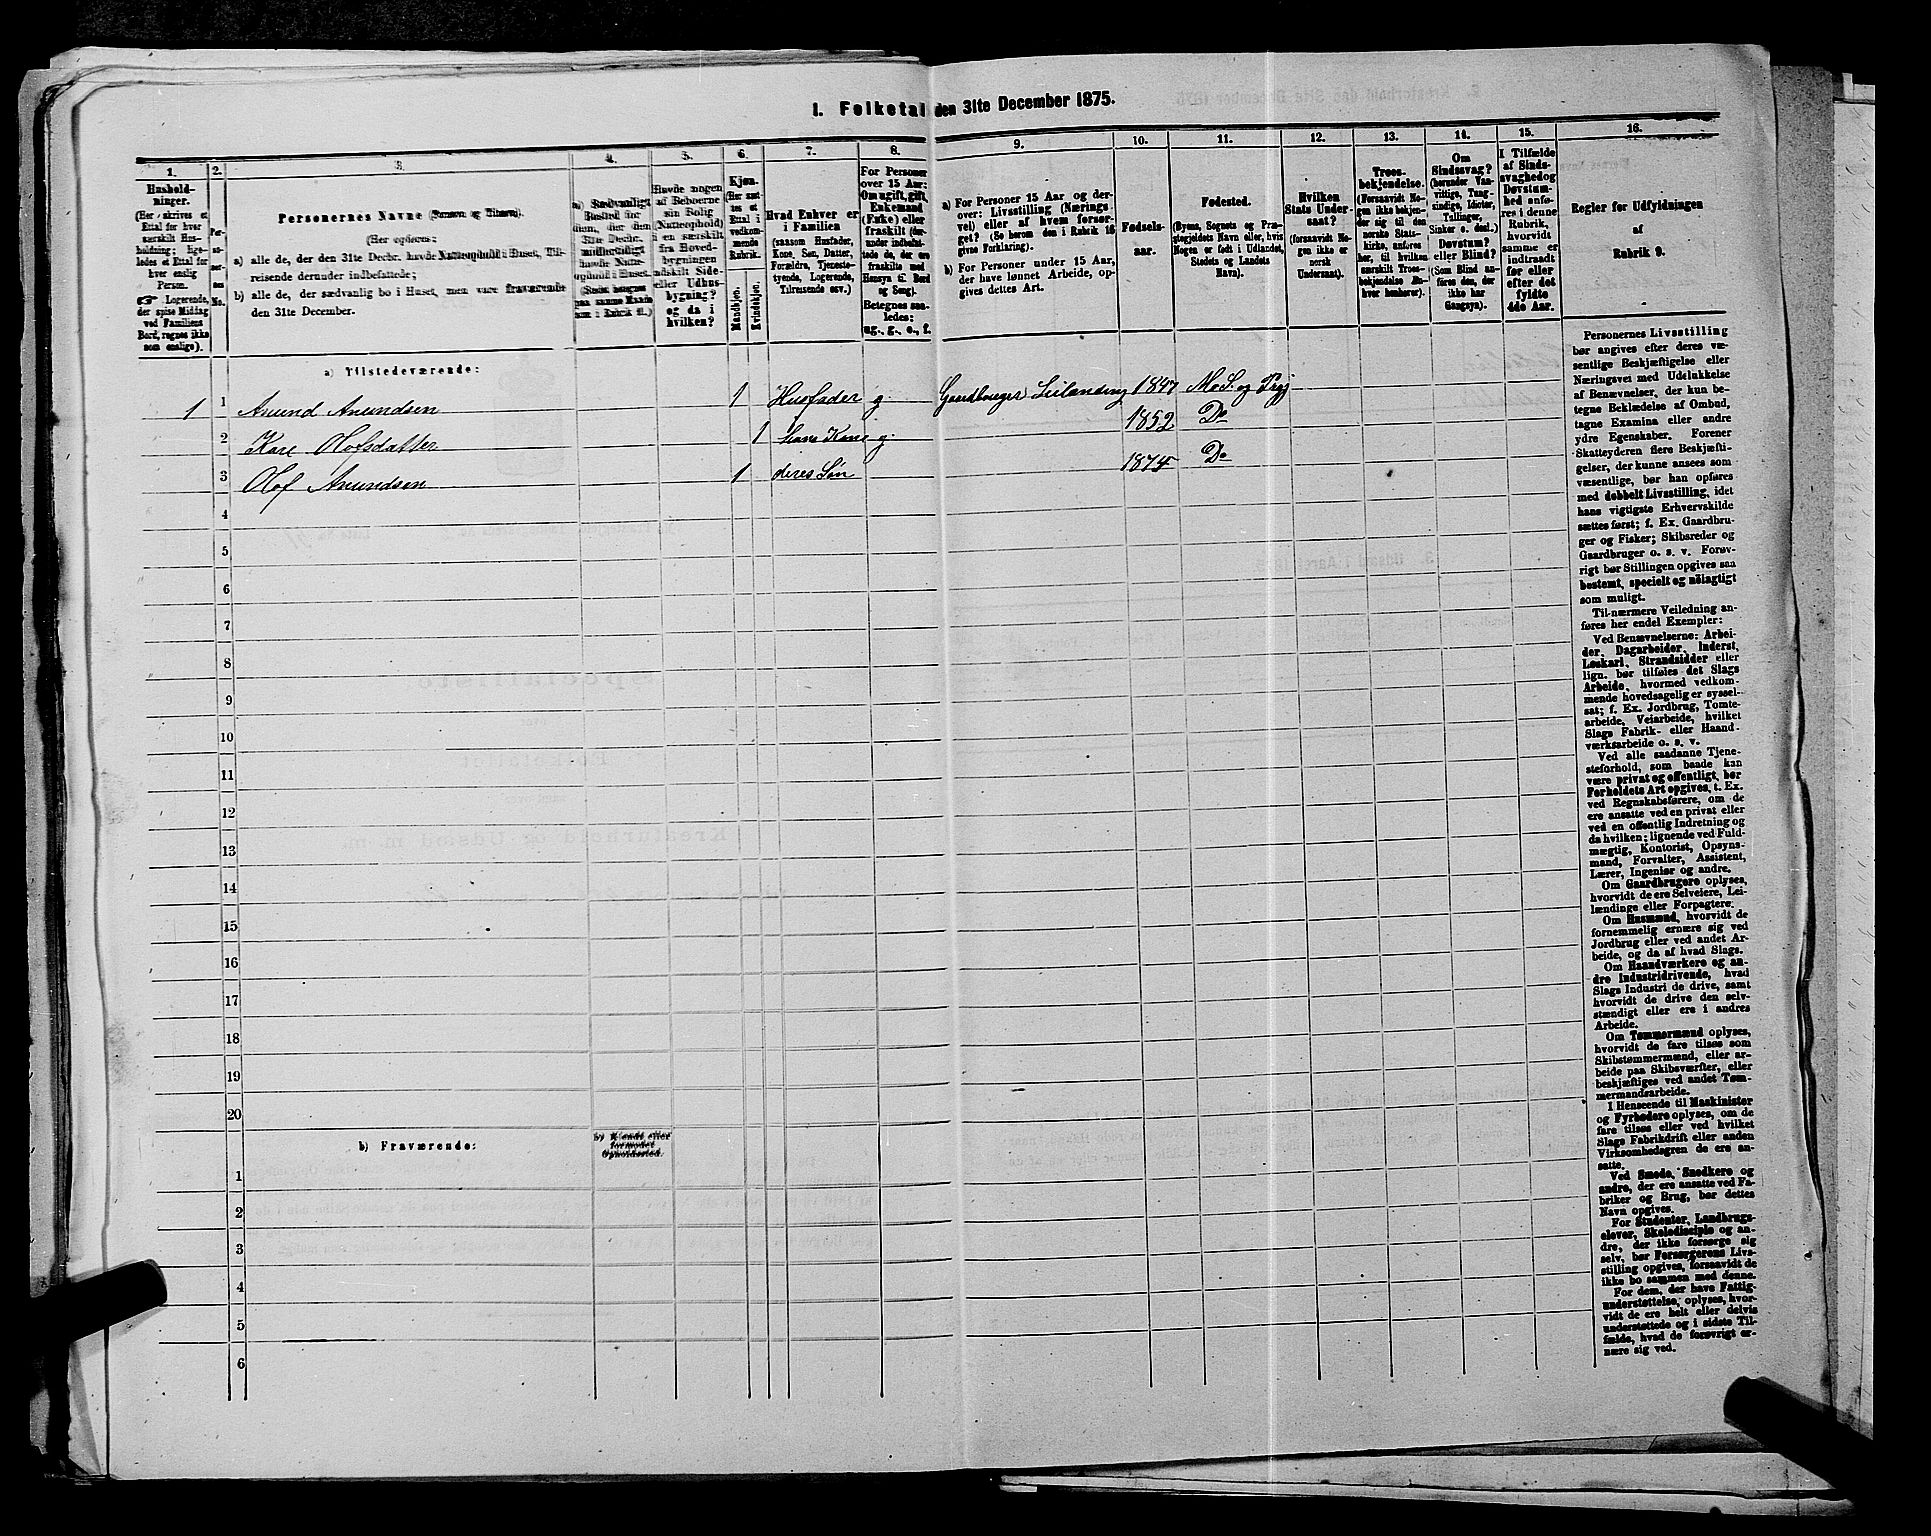 I. Folketal den 31te December 1875.
1. 2. 3. 4. 5. 6. 7. 8. 9. 10. 11. 12. 13. 14. 15. 16.
Hushold-
ninger.
(Her skrives et
Ettal for hver
særskilt Hus-
holdning; lige-
ledes et Ettal for
hver enslig
Person.
Logerende,
der spise Middag
ved Familiens
Bord, regnes ikke
som enslige).
Personernes Navne (Fornavn og Tilnavn).
(Her opføres:
a) alle de, der den 31te Decbr. havde Natteophold i Huset, Til-
reisende derunder indbefattede;
b) alle de, der sædvanlig bo i Huset, men vare fraværende
den 31te December.
Havde nogen
af Beboerne
sin Bolig
(Natteophold)
i en særskilt
fra Hoved-
bygningen
adskilt Side-
eller Udhus-
bygning?
og da i
hvilken?
Kjøn.
(Her sæt-
tes et
Ettal i
vedkom-
mende
Rubrik.
Mandkjøn.
Kvindekjøn.
Hvad Enhver er
i Familien
(saasom Husfader,
Kone, Søn, Datter,
Forældre, Tjeneste-
tyende, Logerende,
Tilreisende osv.)
For Personer
over 15 Aar:
Om ugift, gift,
Enkemand
(Enke) eller
fraskilt (der-
under indbefat-
tede de, der ere
fraskilte med
Hensyn til Bord
og Seng).
Betegnes saa-
ledes:
ug., g., e., f.
a) For Personer 15 Aar og der-
over: Livsstilling (Nærings-
vei) eller af hvem forsør-
get? (Se herom den i Rubrik 16
givne Forklaring).
b) For Personer under 15 Aar,
der have lønnet Arbeide, op-
gives dettes Art.
Fødsels-
aar.
Fødested.
(Byens, Sognets og Præ-
stegjeldets Navn eller, hvis
Nogen er født i Udlandet,
Stedets og Landets
Navn).
Hvilken
Stats Under-
saat?
(forsaavidt No-
gen ikke er
norsk
Undersaat).
Troes-
bekjendelse.
(Forsaavidt No-
gen ikke bekjen-
der sig til den
norske Stats-
kirke, anføres
her, til hvilken
særskilt Troes-
bekjendelse En-
hver henhører).
Om
Sindssvag?
(herunder Van-
vittige, Tung-
sindige, Idioter,
Tullinger,
Sinker o. desl.)
Døvstum?
eller Blind?
(Som Blind an-
føres den, der
ikke har
Gangsyn).
I Tilfælde
af Sinds-
svaghed og
Døvstum-
hed anfø-
res i denne
Rubrik,
hvorvidt
samme er
indtraadt
før eller
efter det
fyldte
4de Aar.
Regler for Udfyldningen
af
Rubrik 9.
a) Tilstedeværende:
1 1 Anund Anundsen 1 Husfader g. Gaardbruger Leilænding 1847 
2 Kari Olofsdatter 1 hans Kone g. 1852 Do
3 Olof Anundsen 1 deres Søn 1874 Do
4
5
6
7
8
9
10
11
12
13
14
15
16
17
18
19
20
b) Fraværende:
b) Kjendt eller
formodet
Opholdssted.
1
2
3
4
5
6
Personernes Livsstilling
bør angives efter deres væ-
sentlige Beskjæftigelse eller
Næringsvei med Udelukkelse
af Benævnelser, der kun be-
tegne Beklædelse af Ombud,
tagne Examina eller andre
ydre Egenskaber. Forener
Skatteyderen flere Beskjæfti-
gelser, der kunne ansees som
væsentlige, bør han opføres
med dobbelt Livsstilling, idet
hans vigtigste Erhvervskilde
sættes først; f. Ex. Gaardbru-
ger og Fisker; Skibsreder og
Gaardbruger o. s. v. Forøv-
rigt bør Stillingen opgives saa
bestemt, specielt og nøiagtigt
som muligt.
Til nærmere Veiledning an-
føres her endel Exempler:
Ved Benævnelserne: Arbei-
der, Dagarbeider, Inderst,
Løskarl, Strandsidder eller
lign. bør tilføies det Slags
Arbeide, hvormed vedkom-
mende hovedsagelig er syssel-
sat; f. Ex. Jordbrug, Tomte-
arbeide, Veiarbeide, hvilket
Slags Fabrik- eller Haand-
værksarbeide o. s. v.
Ved alle saadanne Tjene-
steforhold, som baade kan
være privat og offentligt, bør
Forholdets Art opgives, t. Ex.
ved Regnskabsførere, om de
ere ansatte ved en privat eller
ved en offentlig Indretning og
da hvilken; lignende ved Fuld-
mægtig, Kontorist, Opsyns-
mand, Forvalter, Assistent,
Lærer, Ingeniør og andre.
Om Gaardbrugere oplyses,
hvorvidt de ere Selveiere, Lei-
lændinge eller Forpagtere.
Om Husmænd, hvorvidt de
fornemmelig ernære sig ved
Jordbrug eller ved andet Ar-
beide, og da af hvad Slags.
Om Haandværkere og an-
dre Industridrivende, hvad
Slags Industri de drive, samt
hvorvidt de drive den selv-
stændigt eller ere i andres
Arbeide.
Om Tømmermænd oplyses,
hvorvidt de fare tilsøs som
Skibstømmermænd, eller ar-
beide paa Skibsværfter, eller
beskjæftiges ved andet Tøm-
mermandsarbeide.
I Henseende til Maskinister
og Fyrbødere oplyses, om de
fare tilsøs eller ved hvilket
Slags Fabrikdrift eller anden
Virksomhedsgren de ere an-
satte.
Ved Smede, Snedkere og
andre, der ere ansatte ved Fa-
briker og Brug, bør dettes
Navn opgives.
For Studenter, Landbrugs-
elever, Skoledisciple og an-
dre, der ikke forsørge sig
selv, bør Forsørgerens Livs-
stilling opgives, forsaavidt de
ikke bo sammen med denne.
For dem, der have Fattig-
understøttelse, oplyses, hvor-
vidt de ere helt eller delvis
understøttede og i sidste Til-
fælde, hvad de forøvrigt er-
nære sig ved.